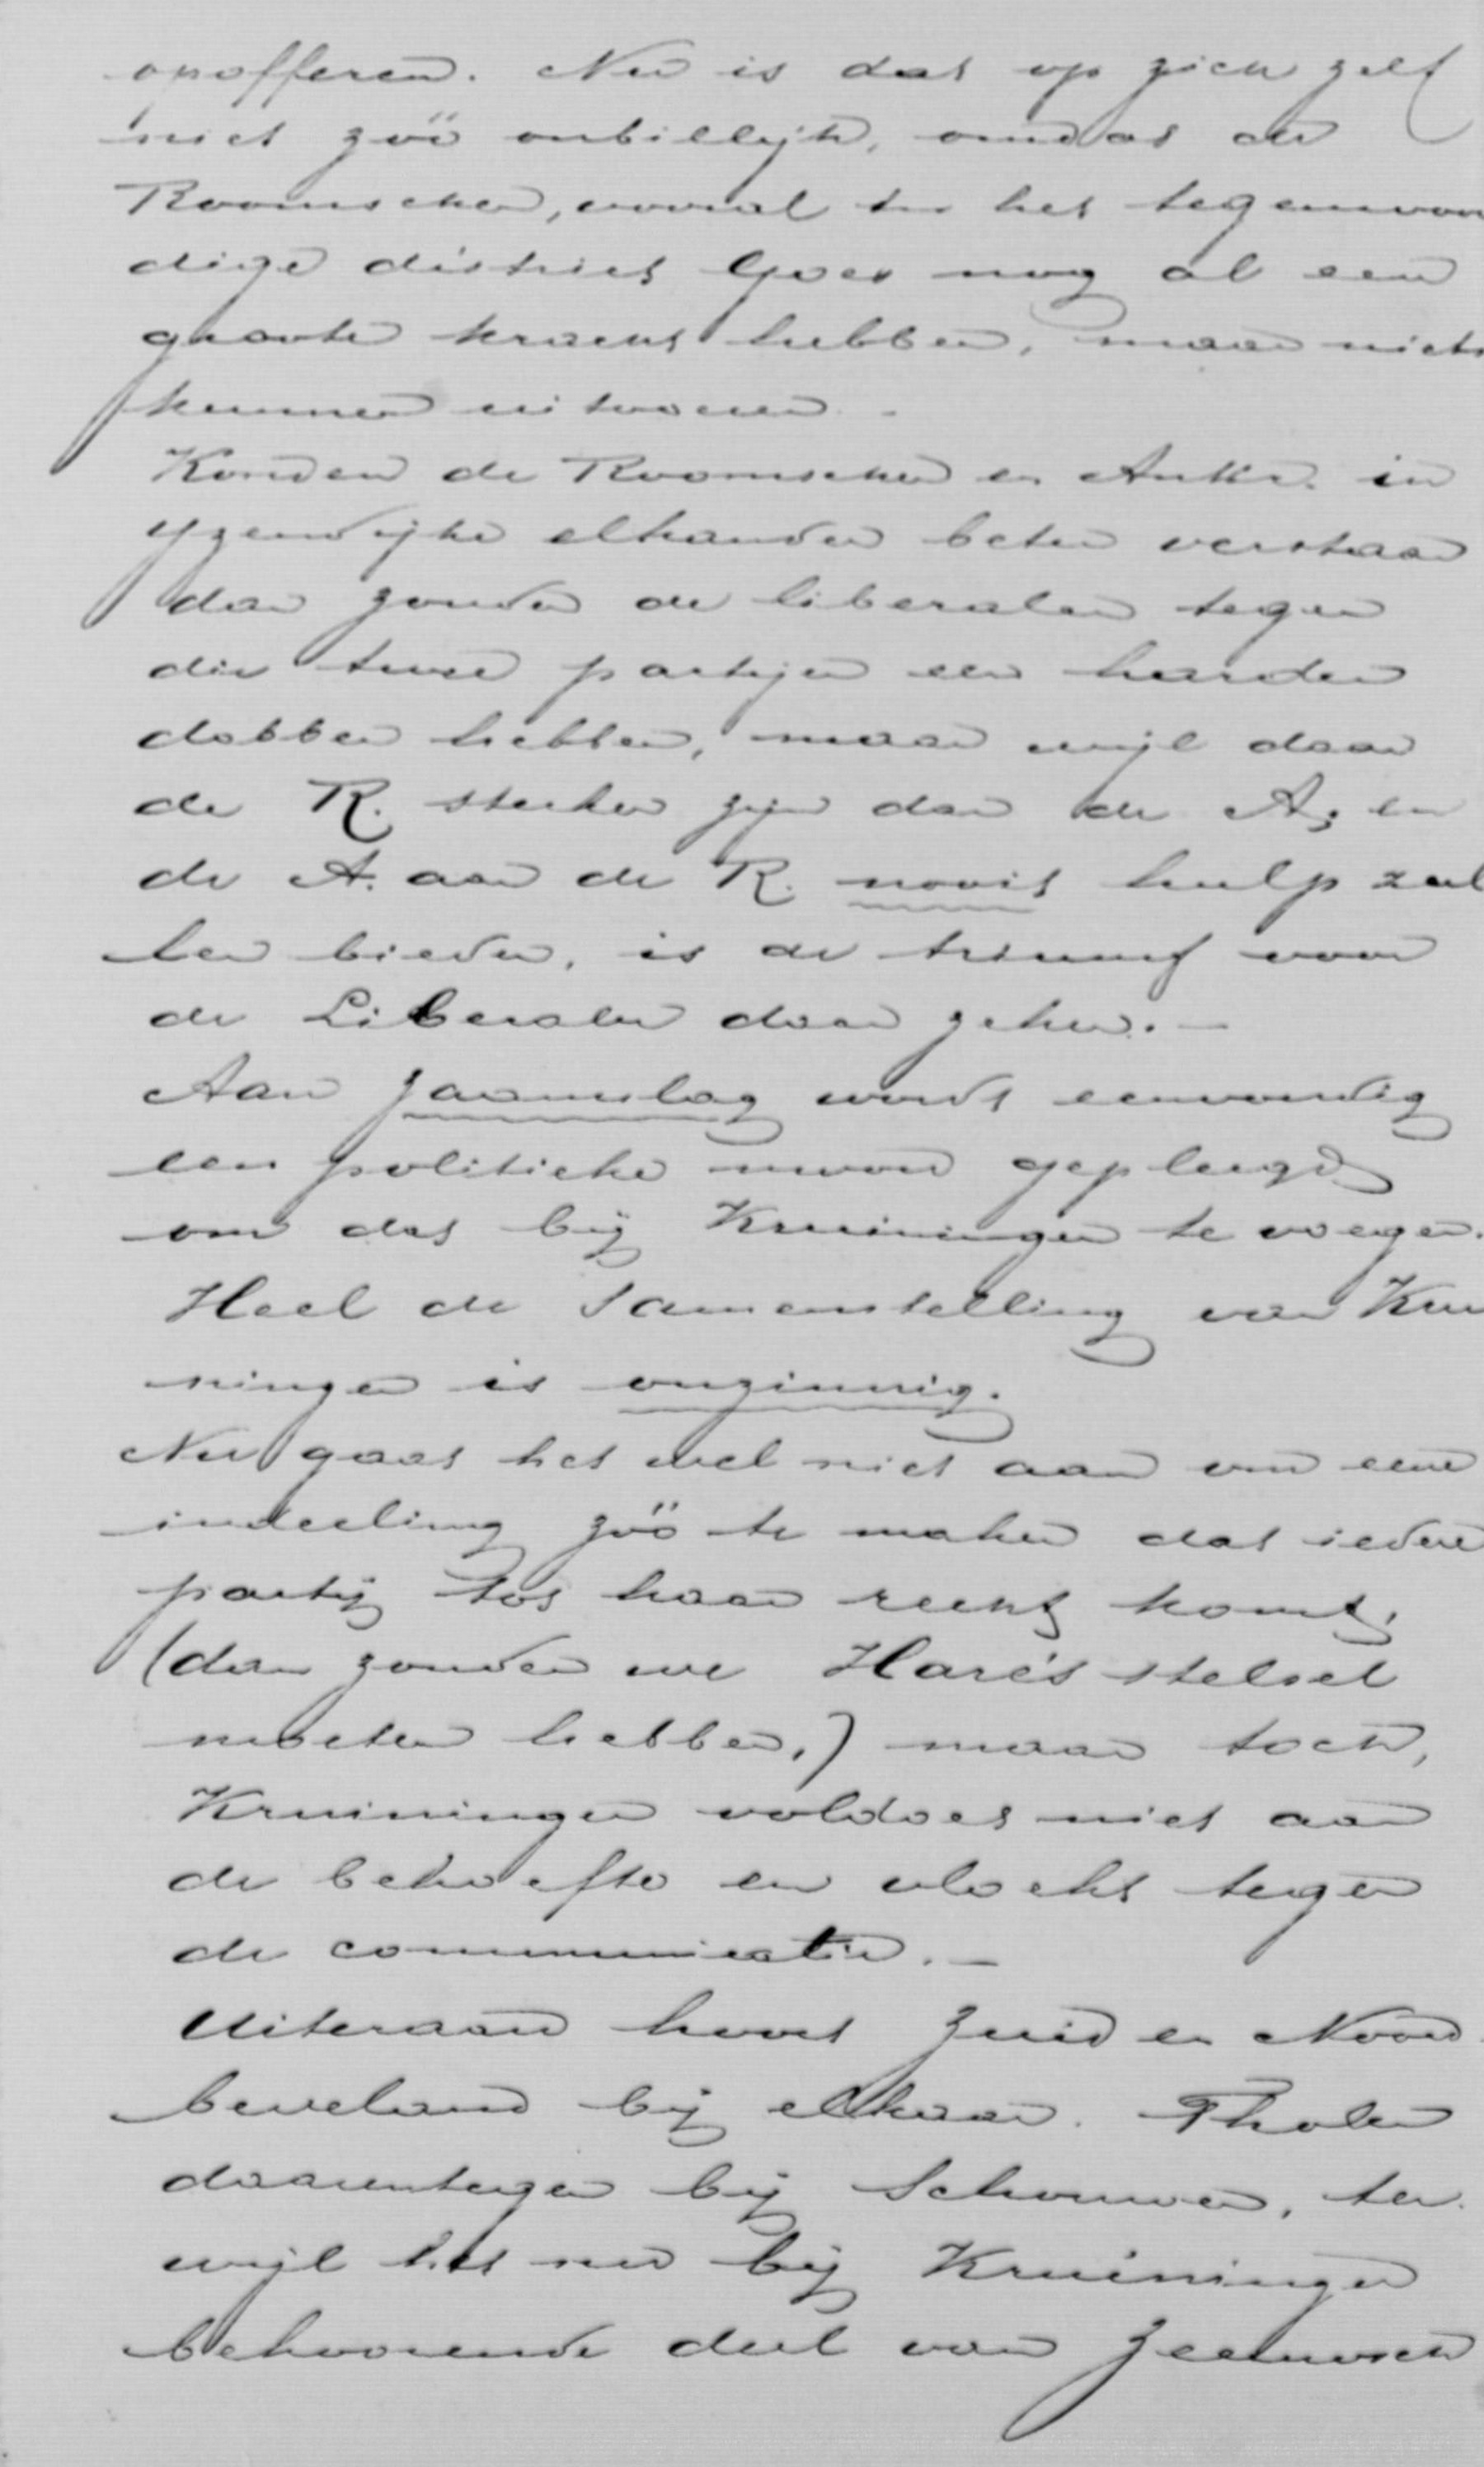 opofferen. Nu is dat op zich zelf
niet zóó onbillijk, omdat de
Roomschen, vooral in het tegenwoor
dige district Goes nog al een
groote kracht hebben, maar niets
kunnen uitvoeren.
Konden de Roomschen en Antir. in
Yzendijke elkander beter verstaan
dan zouden de liberalen tegen
die twee partijen een harden
dobber hebben, maar wijl daar
de R. sterker zijn dan de A. en
de A. aan de R. nooit hulp zul
len bieden, is de triumf voor
de Liberalen daar zeker. —
Aan Zaamslag wordt eenvoudig
een politieke moord gepleegd
om dat bij Kruiningen te voegen.
Heel de samenstelling van Krui
ningen is onzinnig.
Nu gaat het wel niet aan om eene
indeeling zóó te maken dat iedere
partij tot haar recht komt,
(dan zouden we Hare's stelsel
moeten hebben,) maar toch,
Kruiningen voldoet niet aan
de behoefte en vloekt tegen
de communicatie. —
Uiteraard hoort Zuid en Noord
beveland bij elkaar. Tholen
daarentegen bij Schouwen, ter
wijl het nu bij Kruiningen
behoorende deel van Zeeuwsch